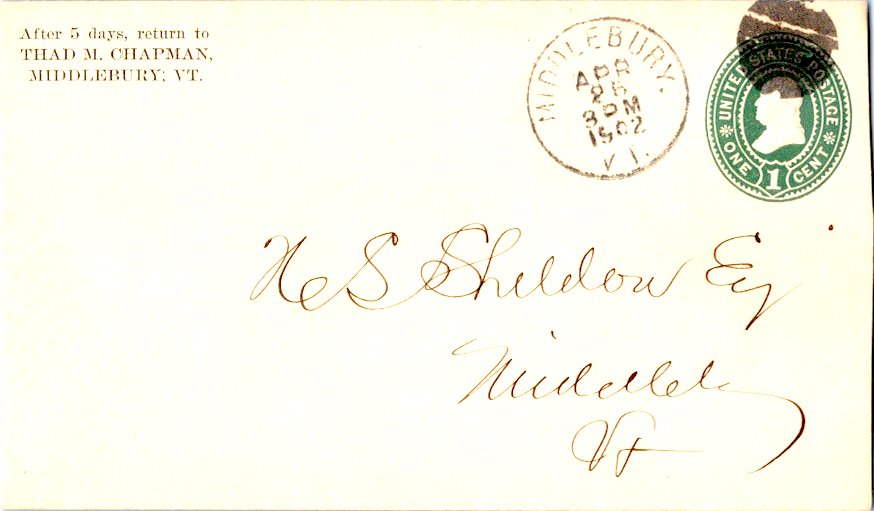 After 5 days, return to
THAD M. CHAPMAN,
MIDDLEBURY, VT.
MIDDLEBURY.
APR
26
3 PM
1902
VT.
UNITED STATES POSTAGE
ONE 1 CENT
H S Sheldon Esq
Middleb
Vt